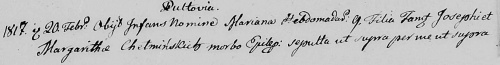 Pultovia.
1817. q 20. Febr. Obijt Infans Nomine Mariana Hebdomadar. 9. Filia Fam. Josephi et
Margarithæ Chelmińskich morbo Epilep: sepulta ut supra per me ut supra